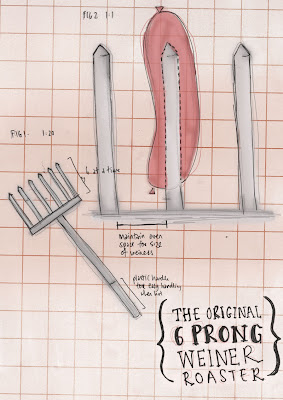 FIG 2. 1:1
FIG 1. 1:20
6 at a time
maintain even
space for size
of weiners
plastic handle
for easy handling
when hot
THE ORIGINAL
6 PRONG
WEINER
ROASTER